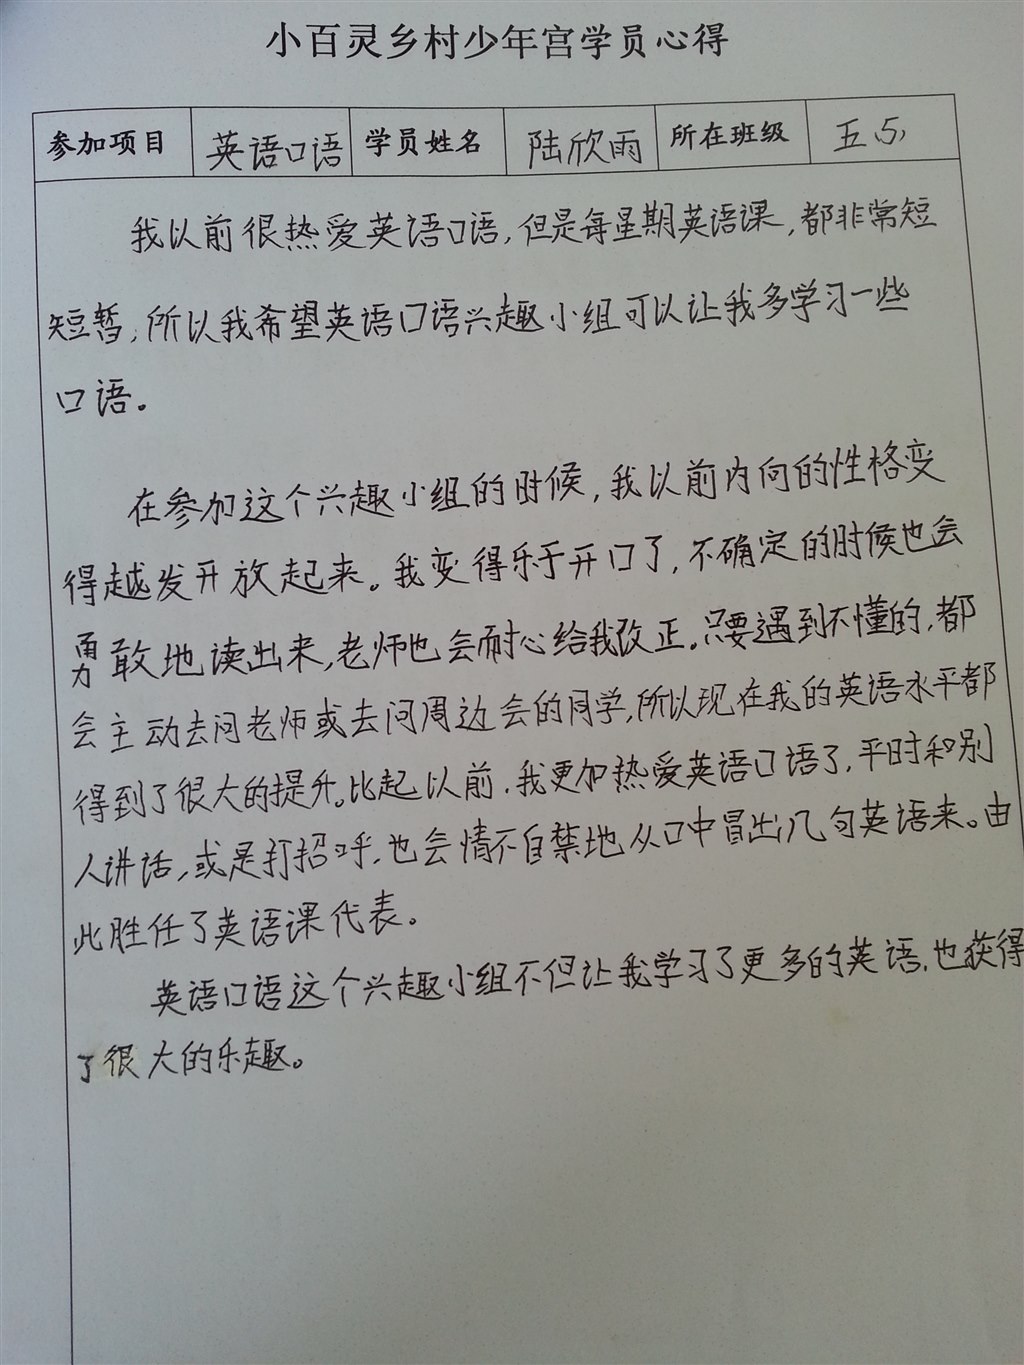 小百灵乡村少年宫学员心得
参加项目 英语口语 学员姓名 陆欣雨 所在班级 五(5)
我以前很热爱英语口语,但是每星期英语课,都非常短
短暂,所以我希望英语口语兴趣小组可以让我多学习一些
口语。
在参加这个兴趣小组的时候,我以前内向的性格变
得越发开放起来。我变得乐于开口了,不确定的时候也会
勇敢地读出来,老师也会耐心给我改正。只要遇到不懂的,都
会主动去问老师或去问周边会的同学,所以现在我的英语水平都
得到了很大的提升。比起以前,我更加热爱英语口语了,平时和别
人讲话,或是打招呼,也会情不自禁地从口中冒出几句英语来。由
此胜任了英语课代表。
英语口语这个兴趣小组不但让我学习了更多的英语,也获得
了很大的乐趣。